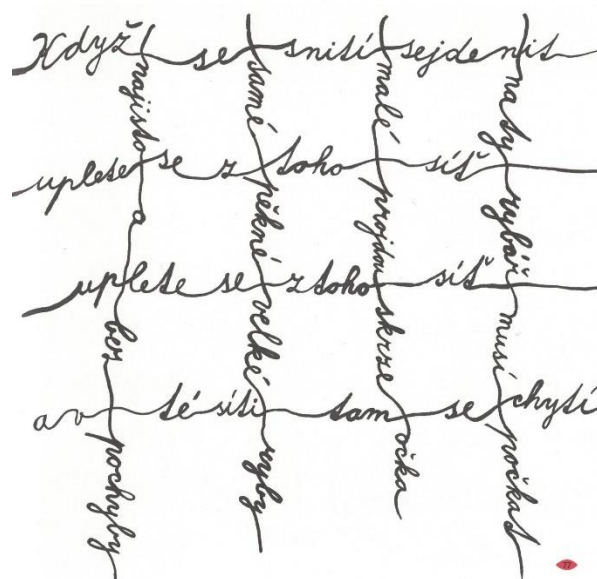 Když se s nití sejde nit
uplete se z toho síť
uplete se z toho síť
a v té síti tam se chytí
najisto a bez pochyby
samé pěkné velké ryby
malé projdou skrze očka
na ty rybář musí počkat
77